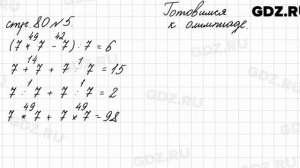 стр. 80 № 5.
Готовимся
к олимпиаде.
GDZ.RU
49 42
(7 * 7 - 7) : 7 = 6
14 1
7 + 7 + 7 : 7 = 15
1 1
7 : 7 + 7 : 7 = 2
49 49
7 * 7 + 7 * 7 = 98
GDZ.RU